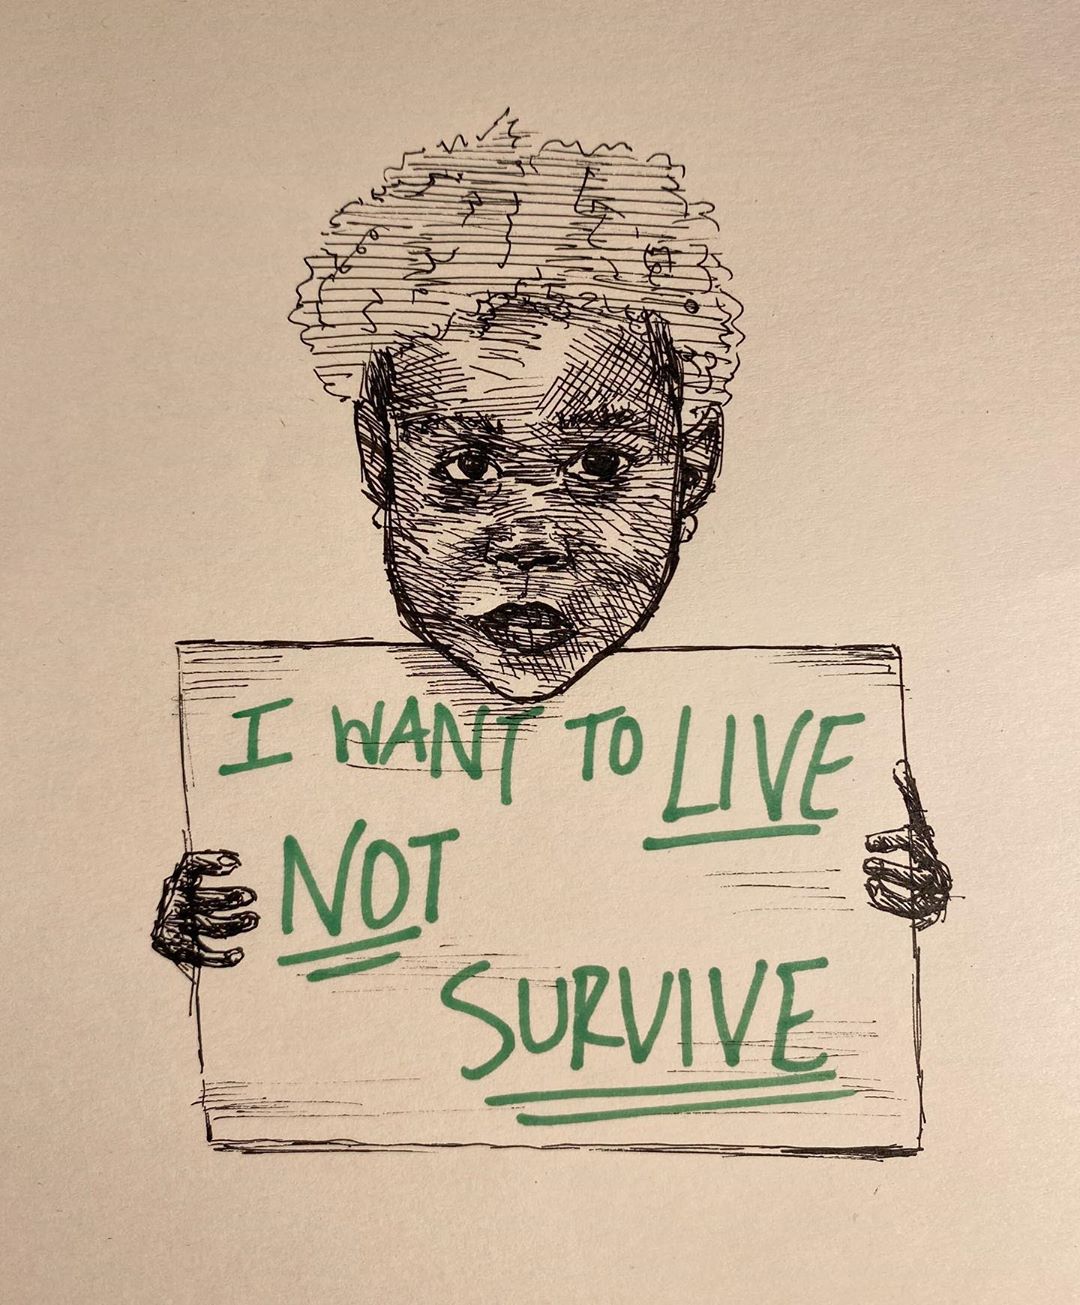 I WANT TO LIVE
NOT
SURVIVE